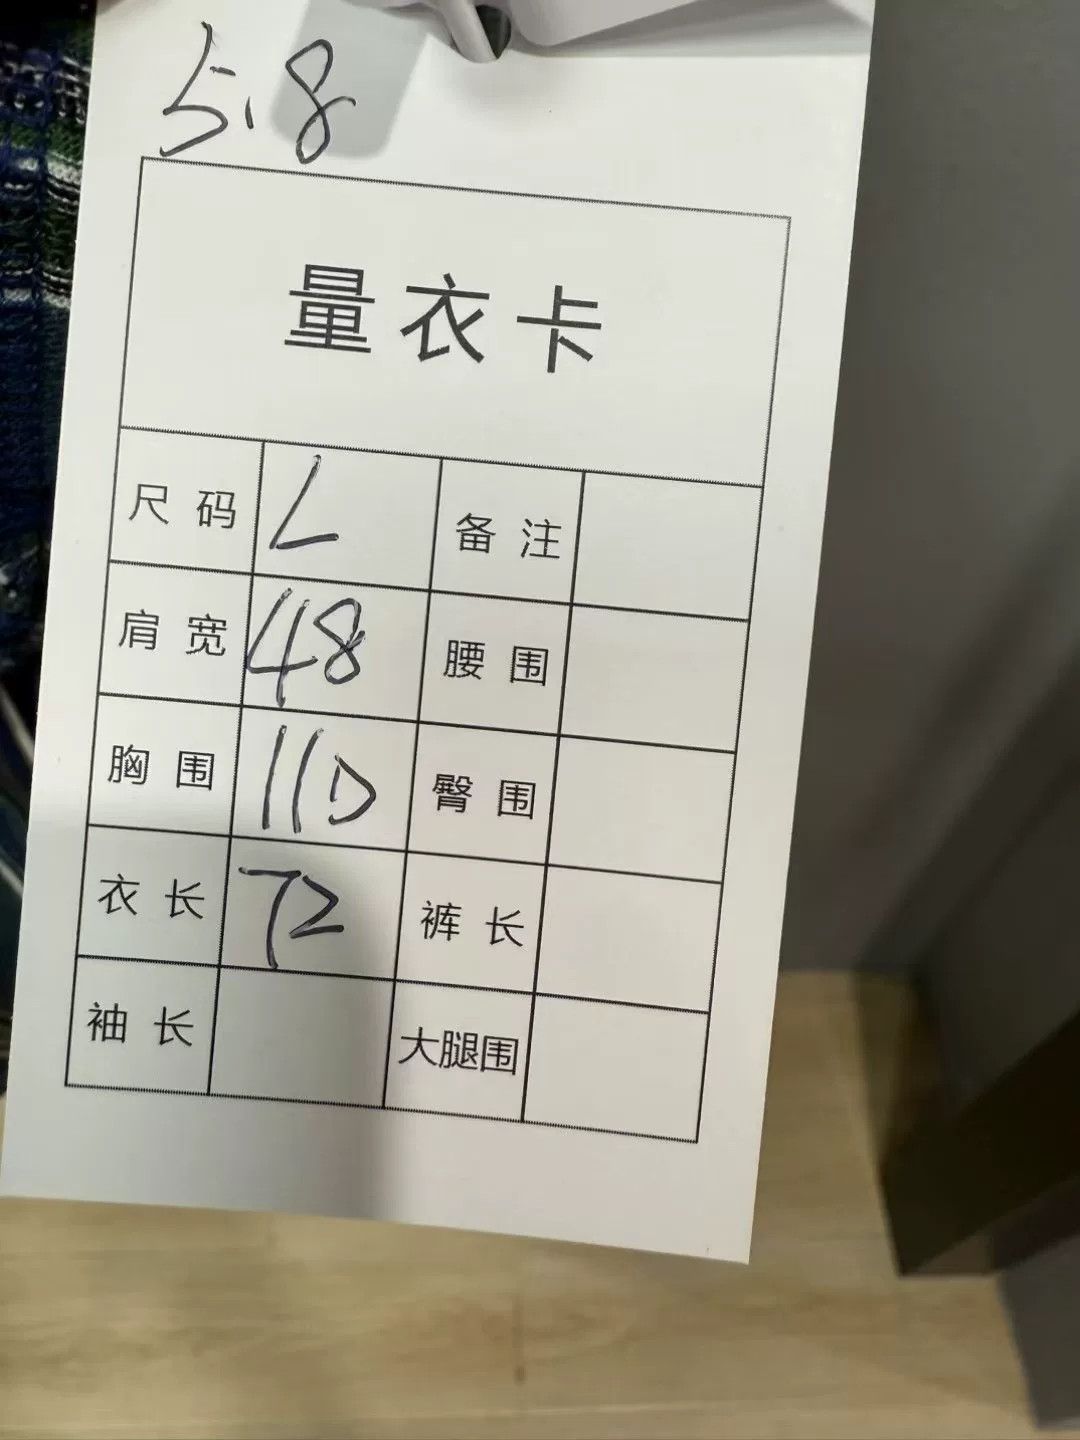 5.8
量衣卡
尺码 L 备注
肩宽 48 腰围
胸围 110 臀围
衣长 72 裤长
袖长 大腿围